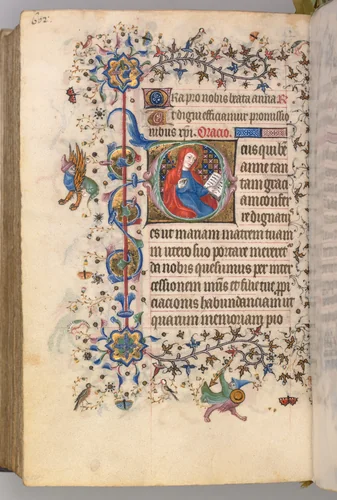 Ora pro nobis beata anna R
Et digni efficiamur promissio
nibus xpi. Oracio.
Deus qui be
anne tan
tam graci
am confer
re dignatus
es ut mariam matrem tuam
in utero suo portare meretur
da nobis quesumus per inter
cessionem et propi
ciacionis habundanciam ut
quarum memoriam pio